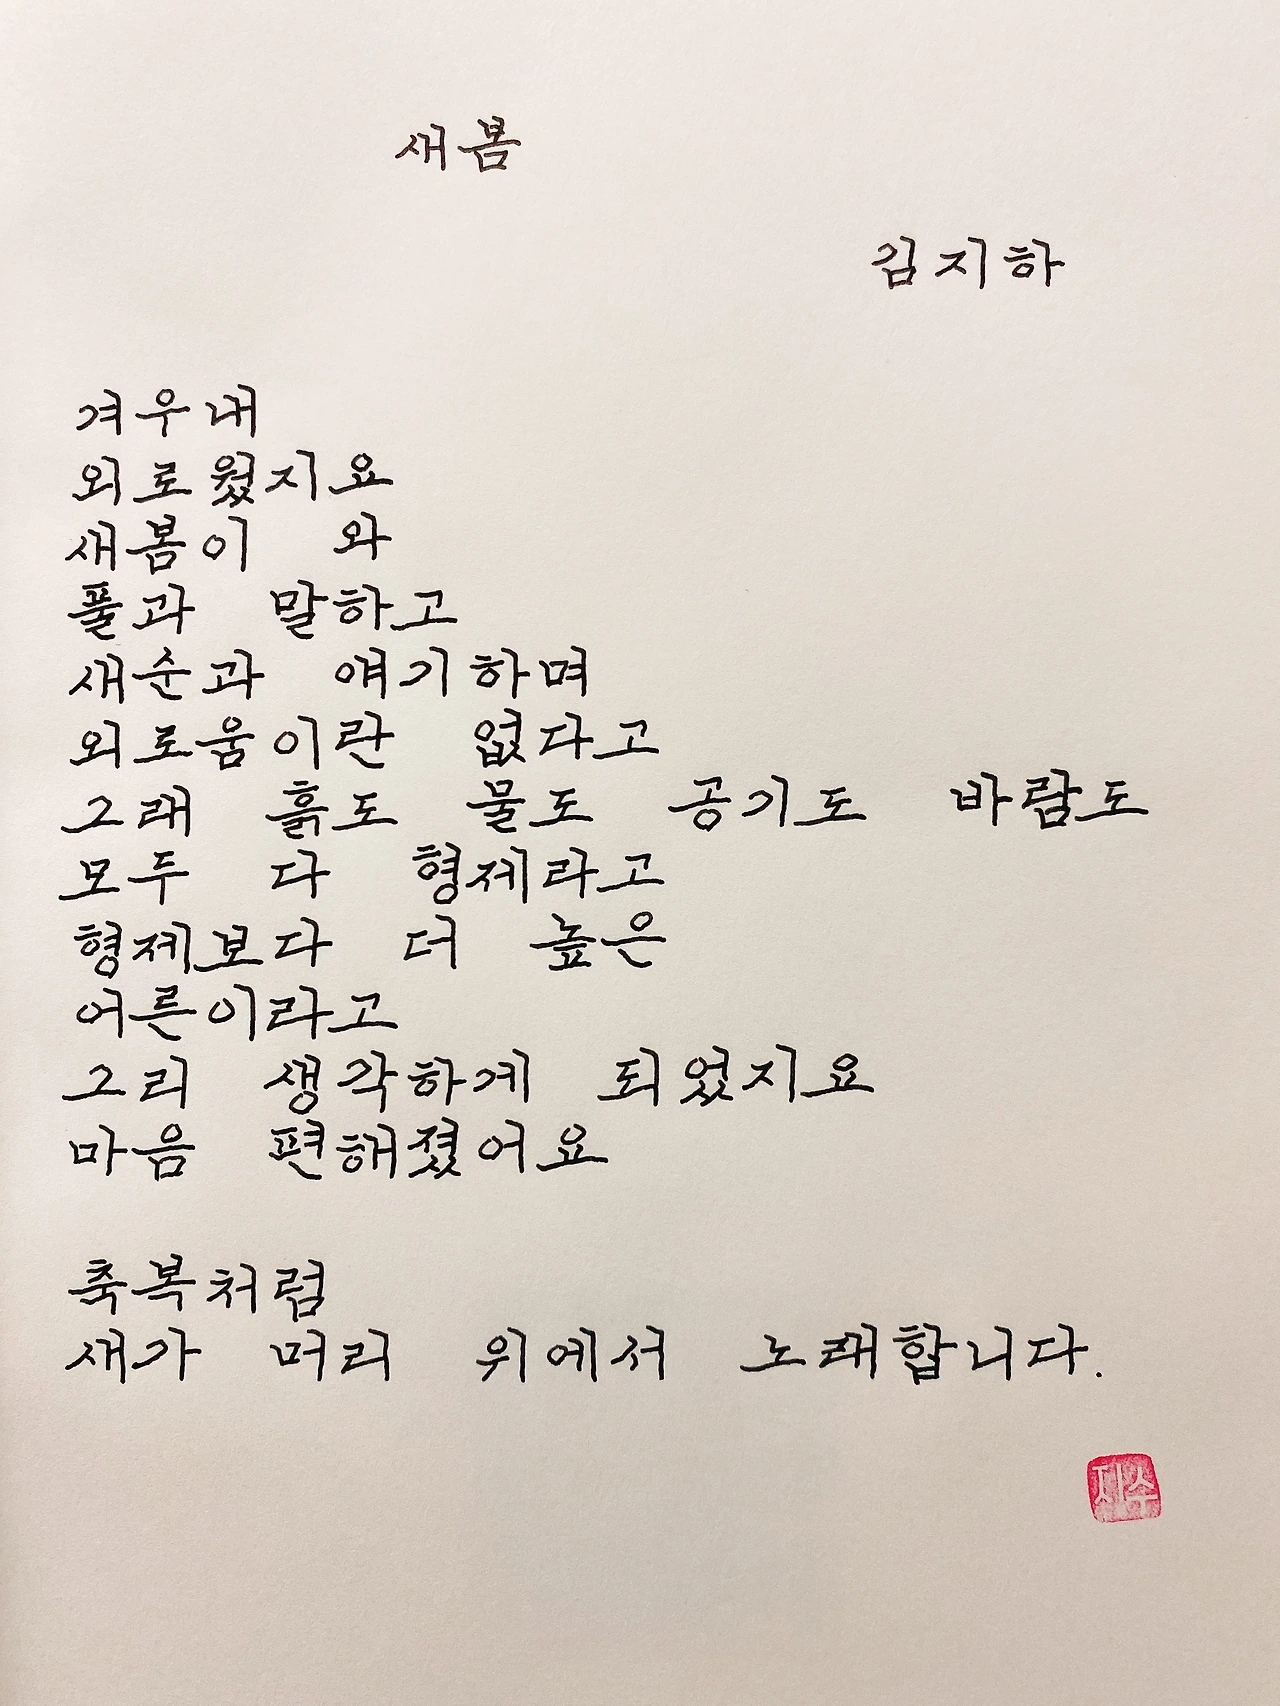 새봄
김지하
겨우내
외로웠지요
새봄이 와
풀과 말하고
새순과 얘기하며
외로움이란 없다고
그래 흙도 물도 공기도 바람도
모두 다 형제라고
형제보다 더 높은
어른이라고
그리 생각하게 되었지요
마음 편해졌어요
축복처럼
새가 머리 위에서 노래합니다.